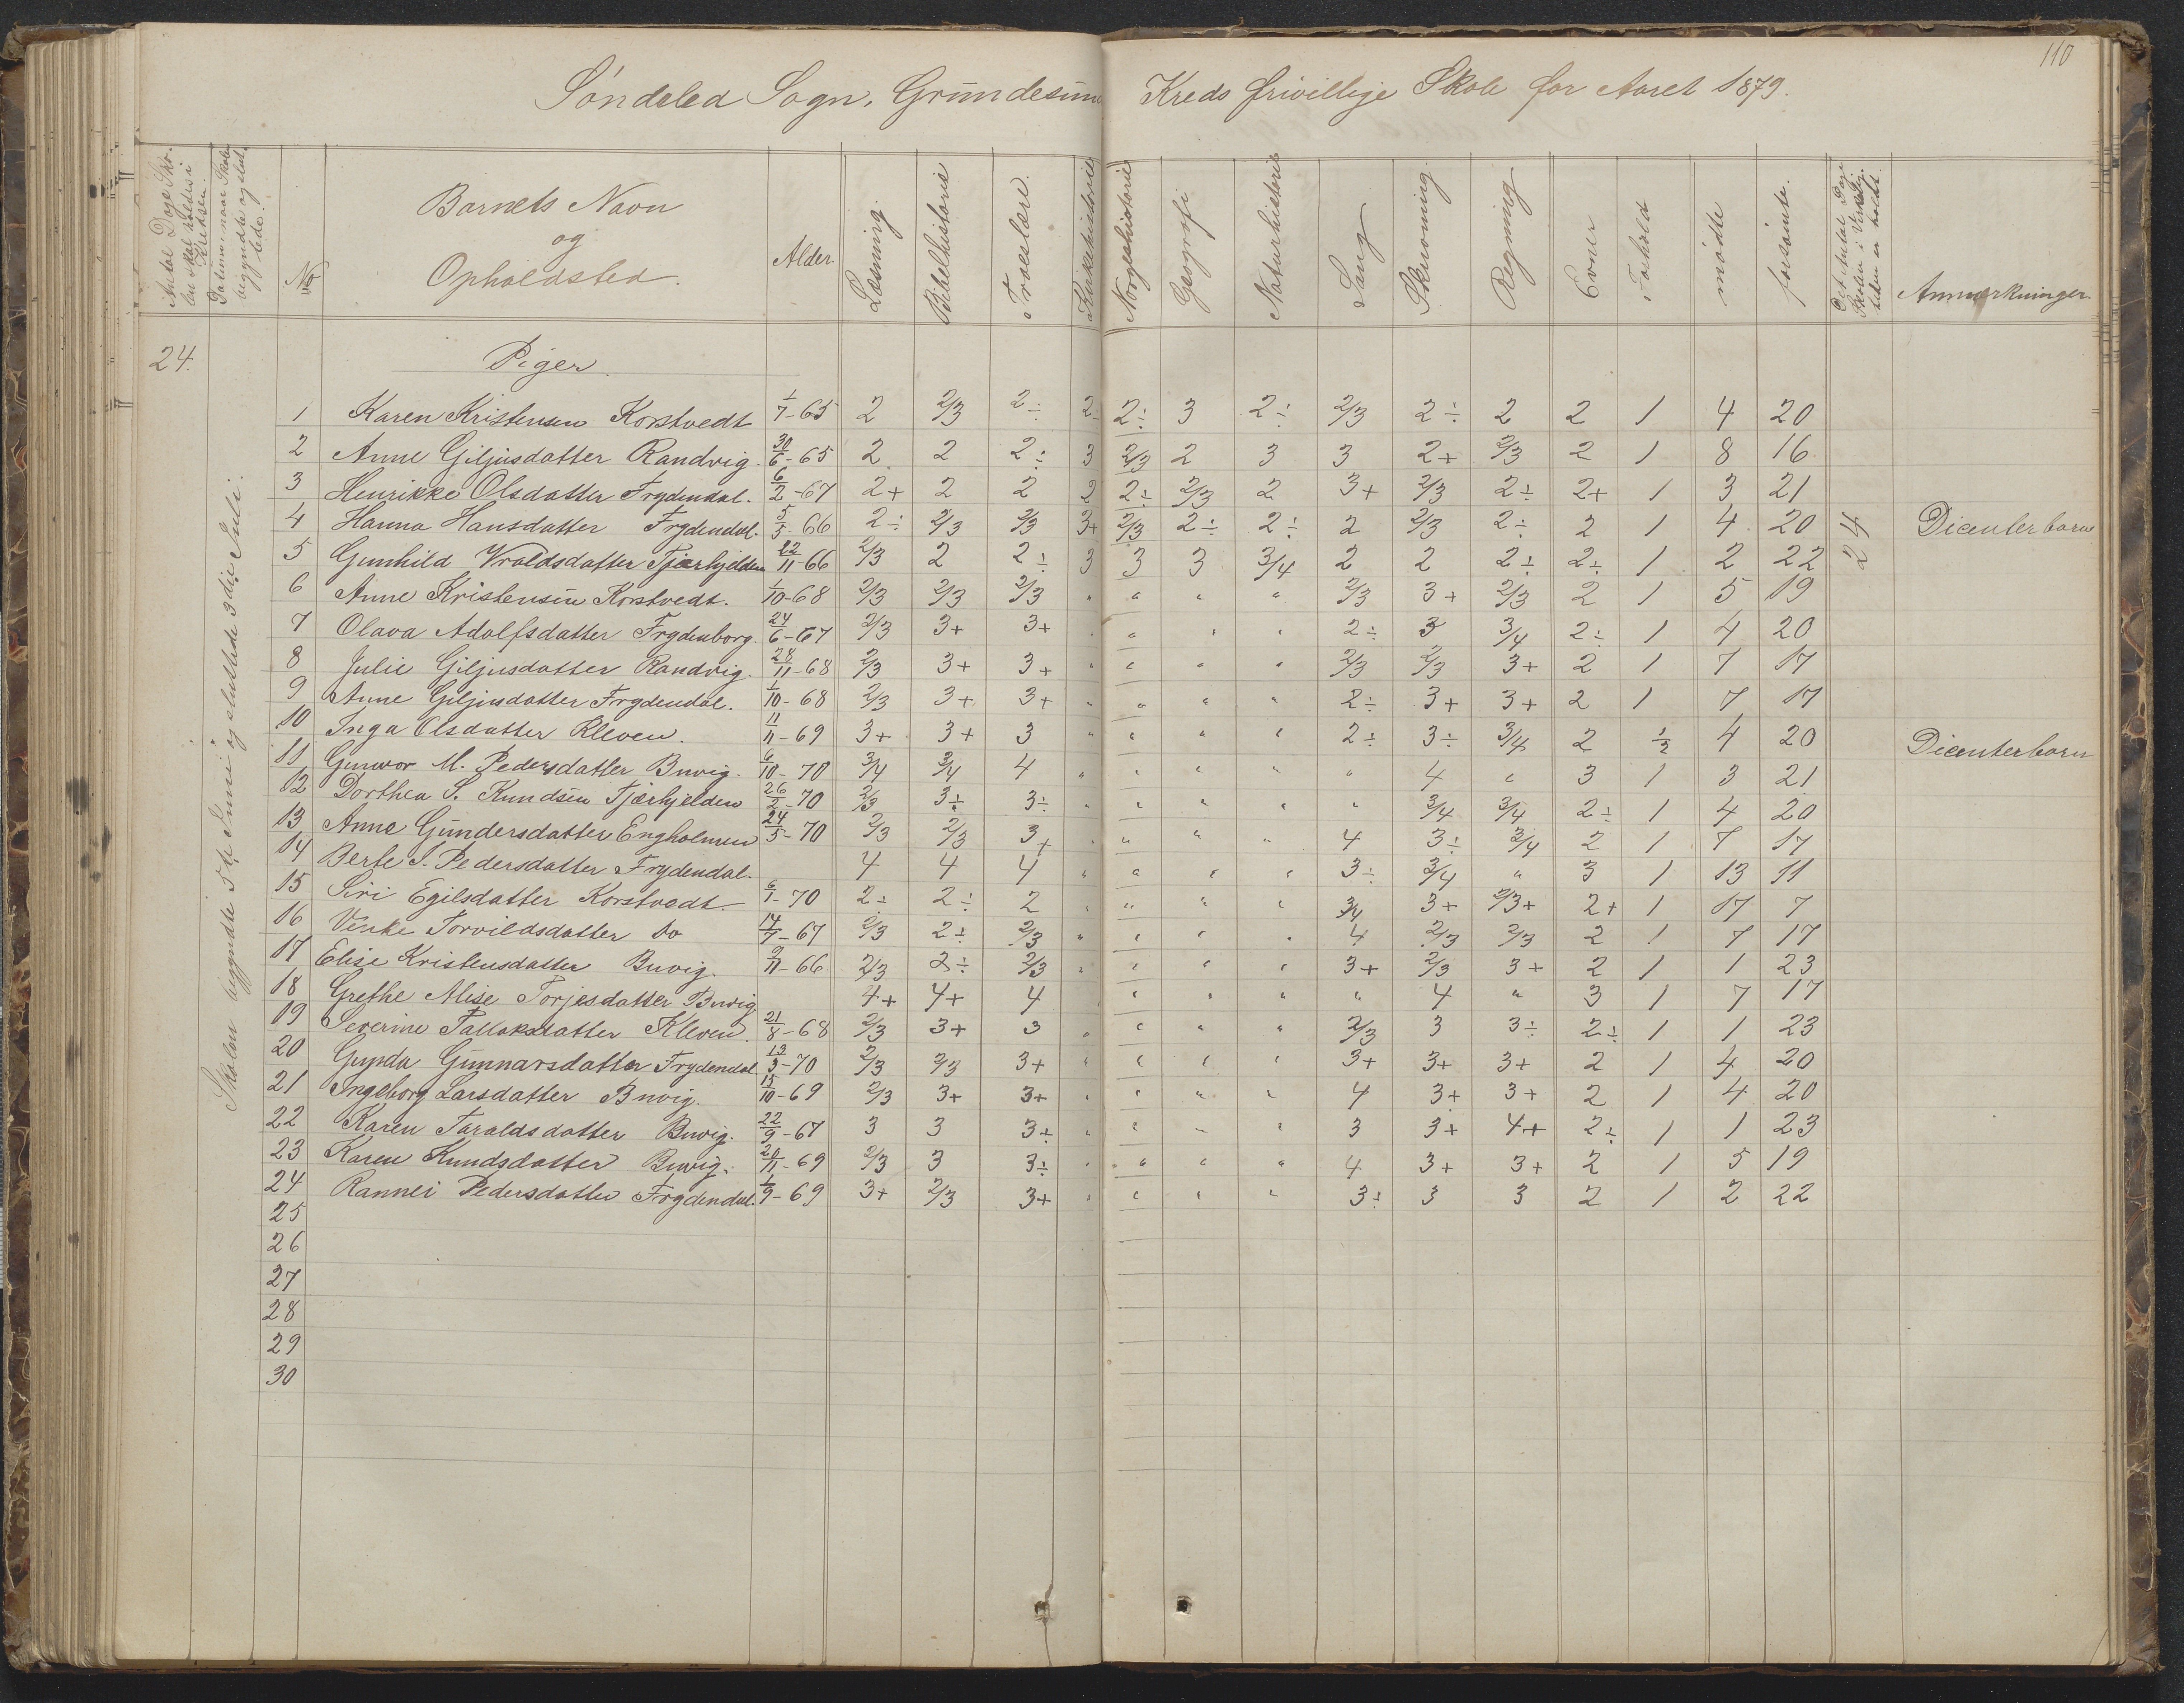 110
Søndeled Sogn, Grundesund Kreds frivillige Skole for Aaret 1879.
Antal Dage Skolen skal holdes i Kredsen.
Datum, naar Skolen begyndte og sluttede.
No
Barnets Navn og Opholdssted.
Alder.
Læsning.
Bibelhistorie
Troeslære.
Kirkehistorie
Norgeshistorie
Geografi
Naturhistorie
Sang
Skrivning
Regning
Evner
Forhold
mødte
forsømte.
Det Antal Dage Skolen i Virkelig- heden er holdt.
Anmærkninger.
24.
Skolen begyndte 5te Juni og sluttede 3die Juli.
Piger.
1 Karen Kristensen Korstvedt 1/7-65 2 2/3 2÷ 2÷ 2÷ 3 2÷ 2/3 2÷ 2 2 1 4 20
2 Anne Giljusdatter Randvig. 30/6-65 2 2 2÷ 3 2/3 2 3 3 2+ 2/3 2 1 8 16
3 Henrikke Olsdatter Frydendal. 6/2-67 2+ 2 2 2 2÷ 2/3 2 3+ 2/3 2÷ 2+ 1 3 21
4 Hanna Hansdatter Frydendal. 5/5-66 2÷ 2/3 2/3 3+ 2/3 2÷ 2÷ 2 2/3 2÷ 2 1 4 20 24 Dicenterbarn
5 Gunhild Vroldsdatter Tjærhjelden 22/11-66 2/3 2 2÷ 3 3 3 3/4 2 2 2÷ 2÷ 1 2 22
6 Anne Kristensen Korstvedt. 1/10-68 2/3 2/3 2/3 " " " " 2/3 3+ 2/3 2 1 5 19
7 Olava Adolfsdatter Frydenborg. 24/6-67 2/3 3+ 3+ " " " " 2÷ 3 3/4 2÷ 1 4 20
8 Julie Giljusdatter Randvig. 28/11-68 2/3 3+ 3+ " " " " 2/3 2/3 3+ 2 1 7 17
9 Anne Giljusdatter Frydendal. 1/10-68 2/3 3+ 3+ " " " " 2÷ 3+ 3+ 2 1 7 17
10 Inga Olsdatter Kleven. 11/11-69 3+ 3+ 3 " " " " 2÷ 3÷ 3/4 2 1/2 4 20 Dicenterbarn
11 Gunvor M. Pedersdatter Buvig. 6/10-70 3/4 3/4 4 " " " " " 4 " 3 1 3 21
12 Dorthea S. Knudsen Tjærhjelden 26/2-70 2/3 3÷ 3÷ " " " " " 3/4 3/4 2÷ 1 4 20
13 Anne Gundersdatter Engholmen 24/5-70 2/3 2/3 3+ " " " " 4 3÷ 3/4 2 1 7 17
14 Berte S. Pedersdatter Frydendal. 4 4 4 " " " " 3÷ 3/4 " 3 1 13 11
15 Siri Egilsdatter Korstvedt 6/1-70 2÷ 2÷ 2 " " " " 3/4 3+ 2/3+ 2+ 1 17 7
16 Venke Torvildsdatter do 14/7-67 2/3 2÷ 2/3 " " " " 4 2/3 2/3 2 1 7 17
17 Elise Kristensdatter Buvig. 9/11-66 2/3 2÷ 2/3 " " " " 3+ 2/3 3+ 2 1 1 23
18 Grethe Alise Torjesdatter Buvig 4+ 4+ 4 " " " " " 4 " 3 1 7 17
19 Severine Tallaksdatter Kleven. 21/8-68 2/3 3+ 3 " " " " 2/3 3 3÷ 2÷ 1 1 23
20 Gunda Gunnarsdatter Frydendal. 13/3-70 2/3 2/3 3+ " " " " 3+ 3+ 3+ 2 1 4 20
21 Ingeborg Larsdatter Buvig. 15/10-69 2/3 3+ 3+ " " " " 4 3+ 3+ 2 1 4 20
22 Karen Taraldsdatter Buvig. 22/9-67 3 3 3÷ " " " " 3 3+ 4+ 2÷ 1 1 23
23 Karen Knudsdatter Buvig. 20/11-69 2/3 3 3÷ " " " " 4 3+ 3+ 2 1 5 19
24 Rannei Pedersdatter Frydendal. 1/9-69 3+ 2/3 3+ " " " " 3÷ 3 3 2 1 2 22
25
26
27
28
29
30